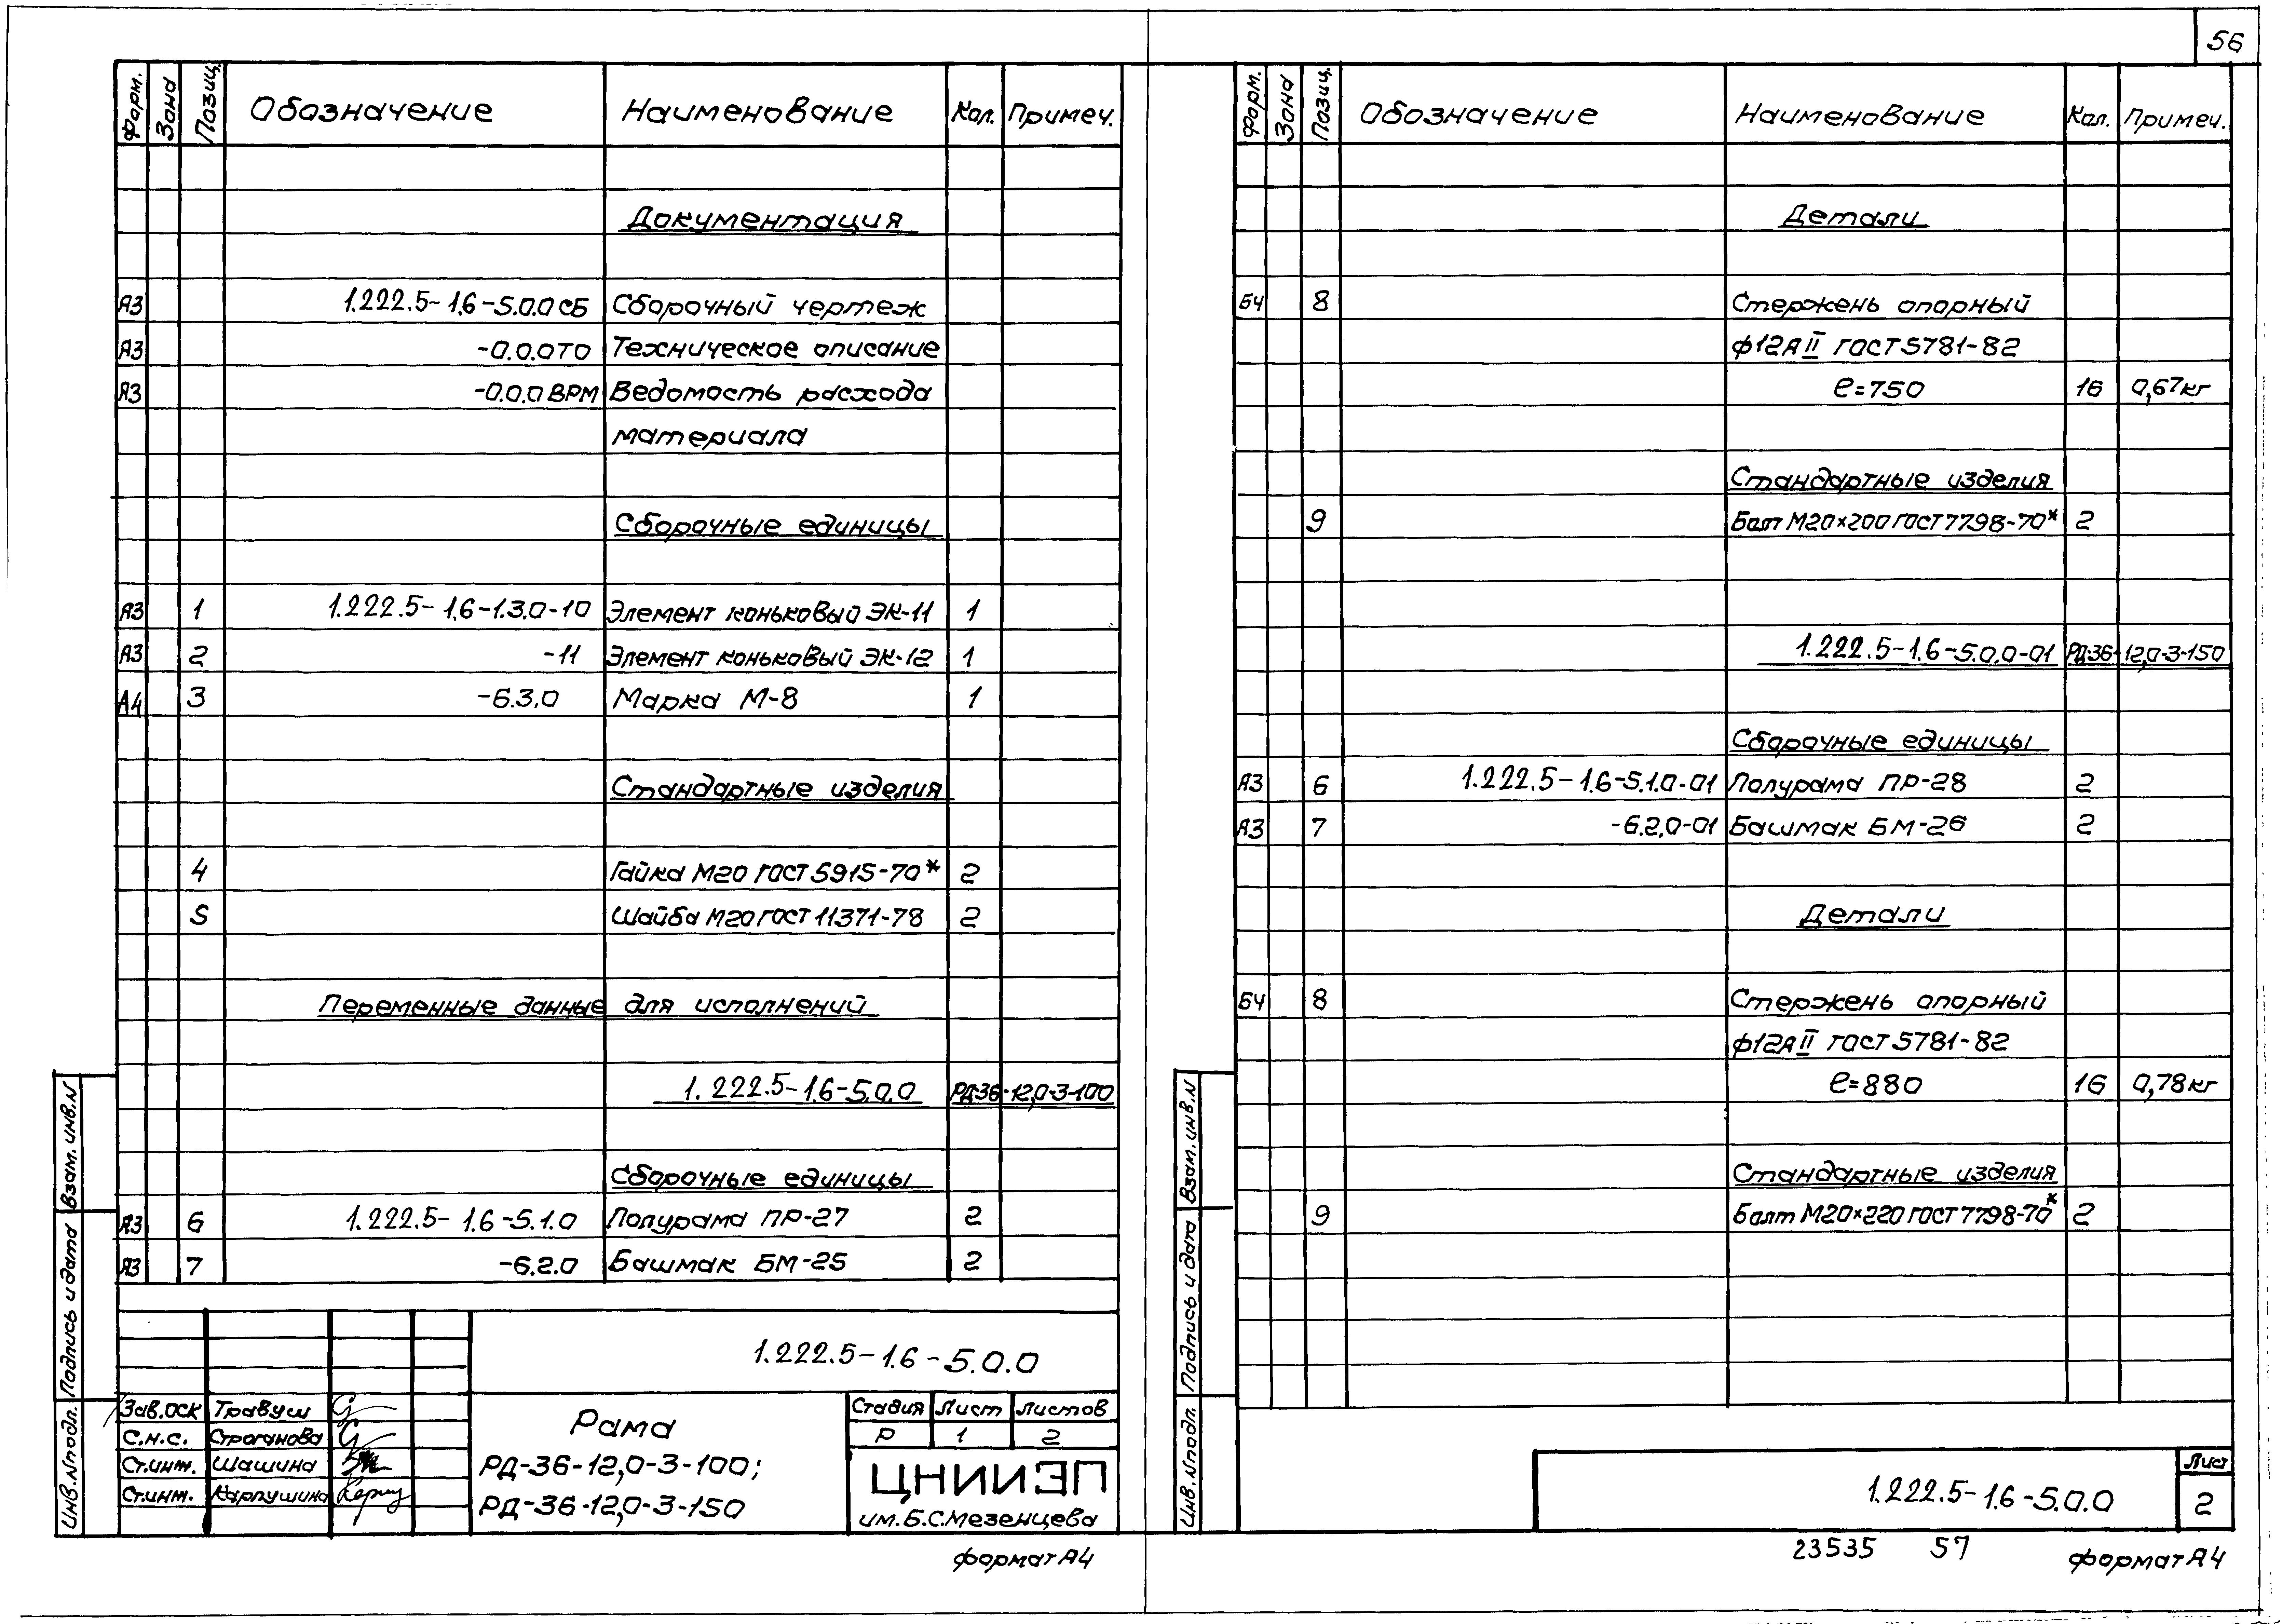 56
Форм. Зона Позиц. Обозначение Наименование Кол. Примеч.
Документация
А3 1.222.5-1.6-5.0.0СБ Сборочный чертеж
А3 -0.0.0ТО Техническое описание
А3 -0.0.0ВРМ Ведомость расхода
материала
Сборочные единицы
А3 1 1.222.5-1.6-1.3.0-10 Элемент коньковый ЭК-11 1
А3 2 -11 Элемент коньковый ЭК-12 1
А4 3 -6.3.0 Марка М-8 1
Стандартные изделия
4 Гайка М20 ГОСТ 5915-70* 2
5 Шайба М20 ГОСТ 11371-78 2
Переменные данные для исполнений
1.222.5-1.6-5.0.0 РД-36-12,0-3-100
Сборочные единицы
А3 6 1.222.5-1.6-5.1.0 Полурама ПР-27 2
А3 7 -6.2.0 Башмак БМ-25 2
Инв.N подл. Подпись и дата Взам. инв.N
1.222.5-1.6-5.0.0
Зав.ОСК Травуш
С.н.с. Строганова
Ст.инж. Шашина
Ст.инж. Карпушина
Рама
РД-36-12,0-3-100;
РД-36-12,0-3-150
Стадия Лист Листов
Р 1 2
ЦНИИЭП
им. Б.С.Мезенцева
формат А4
Форм. Зона Позиц. Обозначение Наименование Кол. Примеч.
Детали
БЧ 8 Стержень опорный
ф12АII ГОСТ 5781-82
ℓ=750 16 0,67кг
Стандартные изделия
9 Болт М20×200 ГОСТ 7798-70* 2
1.222.5-1.6-5.0.0-01 РД-36-12,0-3-150
Сборочные единицы
А3 6 1.222.5-1.6-5.1.0-01 Полурама ПР-28 2
А3 7 -6.2.0-01 Башмак БМ-26 2
Детали
БЧ 8 Стержень опорный
ф12АII ГОСТ 5781-82
ℓ=880 16 0,78кг
Стандартные изделия
9 Болт М20×220 ГОСТ 7798-70* 2
Инв.N подл. Подпись и дата Взам. инв.N
1.222.5-1.6-5.0.0
Лист
2
23535 57
формат А4